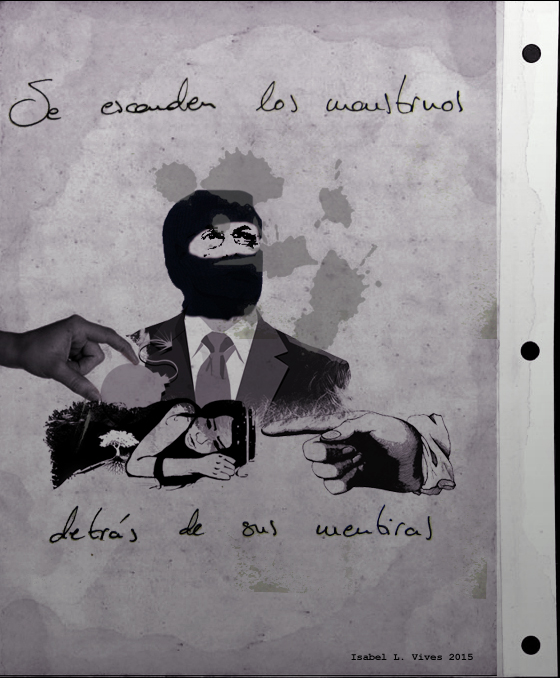 Se esconden los monstruos
detrás de sus mentiras
Isabel L. Vives 2015